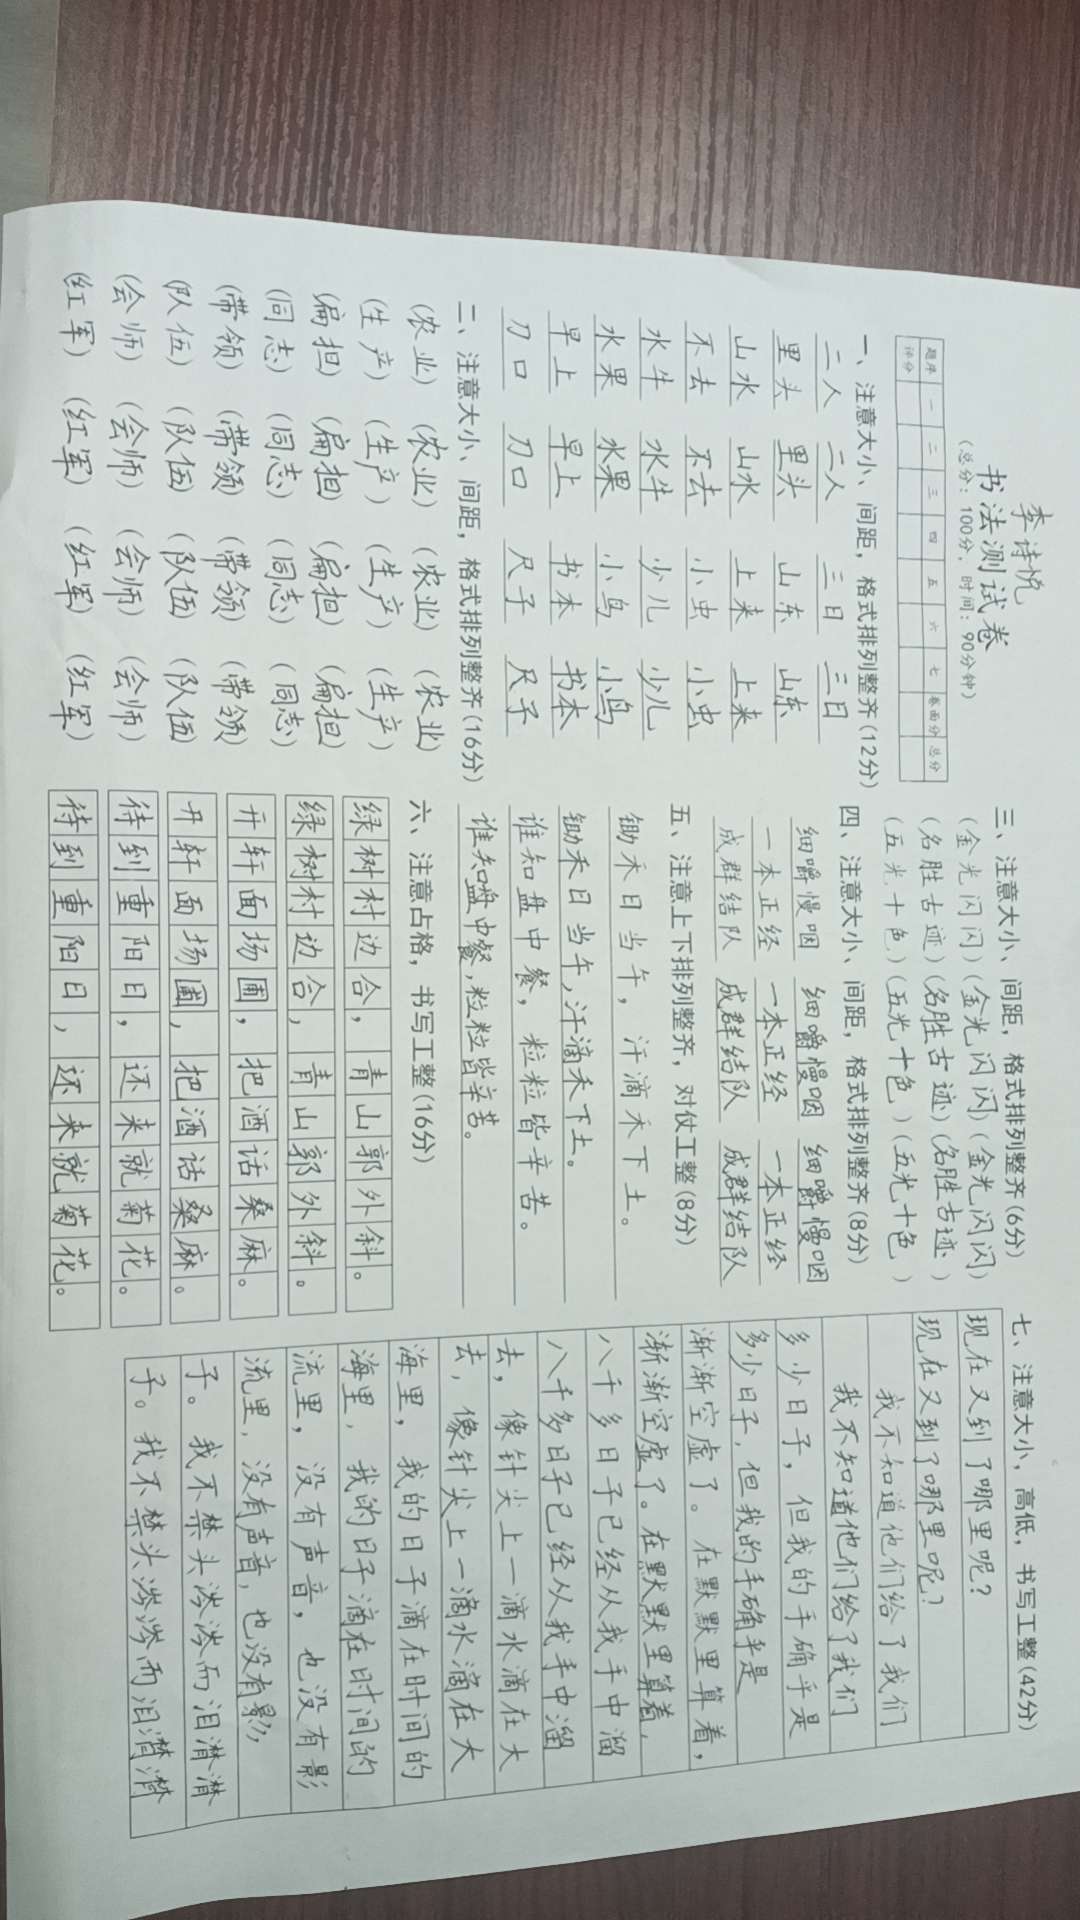 李诗悦
书法测试卷
(总分：100分，时间：90分钟)
题序 一 二 三 四 五 六 七 卷面分 总分
评分
一、注意大小、间距，格式排列整齐(12分)
二人 二人 三日 三日
里头 里头 山东 山东
山水 山水 上来 上来
不去 不去 小虫 小虫
水牛 水牛 少儿 少儿
水果 水果 小鸟 小鸟
早上 早上 书本 书本
刀口 刀口 尺子 尺子
二、注意大小、间距，格式排列整齐(16分)
(农业) (农业) (农业) (农业)
(生产) (生产) (生产) (生产)
(扁担) (扁担) (扁担) (扁担)
(同志) (同志) (同志) (同志)
(带领) (带领) (带领) (带领)
(队伍) (队伍) (队伍) (队伍)
(会师) (会师) (会师) (会师)
(红军) (红军) (红军) (红军)
三、注意大小、间距，格式排列整齐(6分)
(金光闪闪)(金光闪闪)(金光闪闪)
(名胜古迹)(名胜古迹)(名胜古迹)
(五光十色)(五光十色)(五光十色)
四、注意大小、间距，格式排列整齐(8分)
细嚼慢咽 细嚼慢咽 细嚼慢咽
一本正经 一本正经 一本正经
成群结队 成群结队 成群结队
五、注意上下排列整齐，对仗工整(8分)
锄禾日当午，汗滴禾下土。
锄禾日当午，汗滴禾下土。
谁知盘中餐，粒粒皆辛苦。
谁知盘中餐，粒粒皆辛苦。
六、注意占格，书写工整(16分)
绿树村边合，青山郭外斜。
绿树村边合，青山郭外斜。
开轩面场圃，把酒话桑麻。
开轩面场圃，把酒话桑麻。
待到重阳日，还来就菊花。
待到重阳日，还来就菊花。
七、注意大小，高低，书写工整(42分)
现在又到了哪里呢？
现在又到了哪里呢？
我不知道他们给了我们
我不知道他们给了我们
多少日子，但我的手确乎是
多少日子，但我的手确乎是
渐渐空虚了。在默默里算着，
渐渐空虚了。在默默里算着，
八千多日子已经从我手中溜
八千多日子已经从我手中溜
去，像针尖上一滴水滴在大
去，像针尖上一滴水滴在大
海里，我的日子滴在时间的
海里，我的日子滴在时间的
流里，没有声音，也没有影
流里，没有声音，也没有影
子。我不禁头涔涔而泪潸潸
子。我不禁头涔涔而泪潸潸